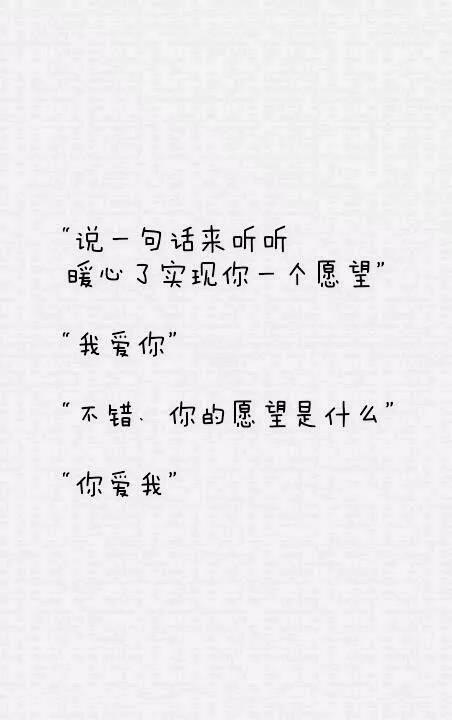 “说一句话来听听
暖心了实现你一个愿望”
“我爱你”
“不错、你的愿望是什么”
“你爱我”